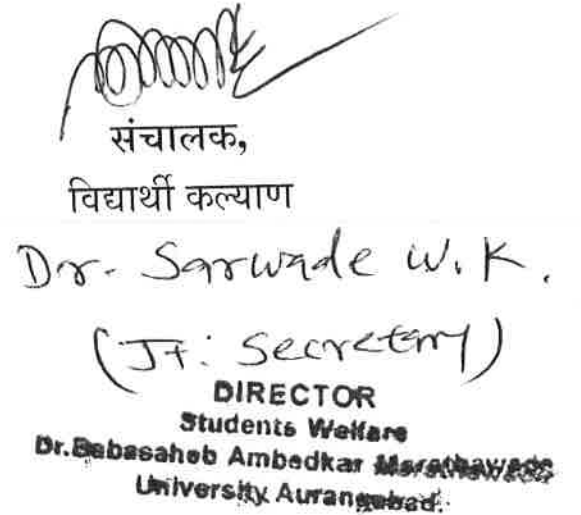 संचालक,
विद्यार्थी कल्याण
Dr. Sarwade W. K.
(Jt: Secretary)
DIRECTOR
Students Welfare
Dr.Babasaheb Ambedkar Marathawada
University Aurangabad.